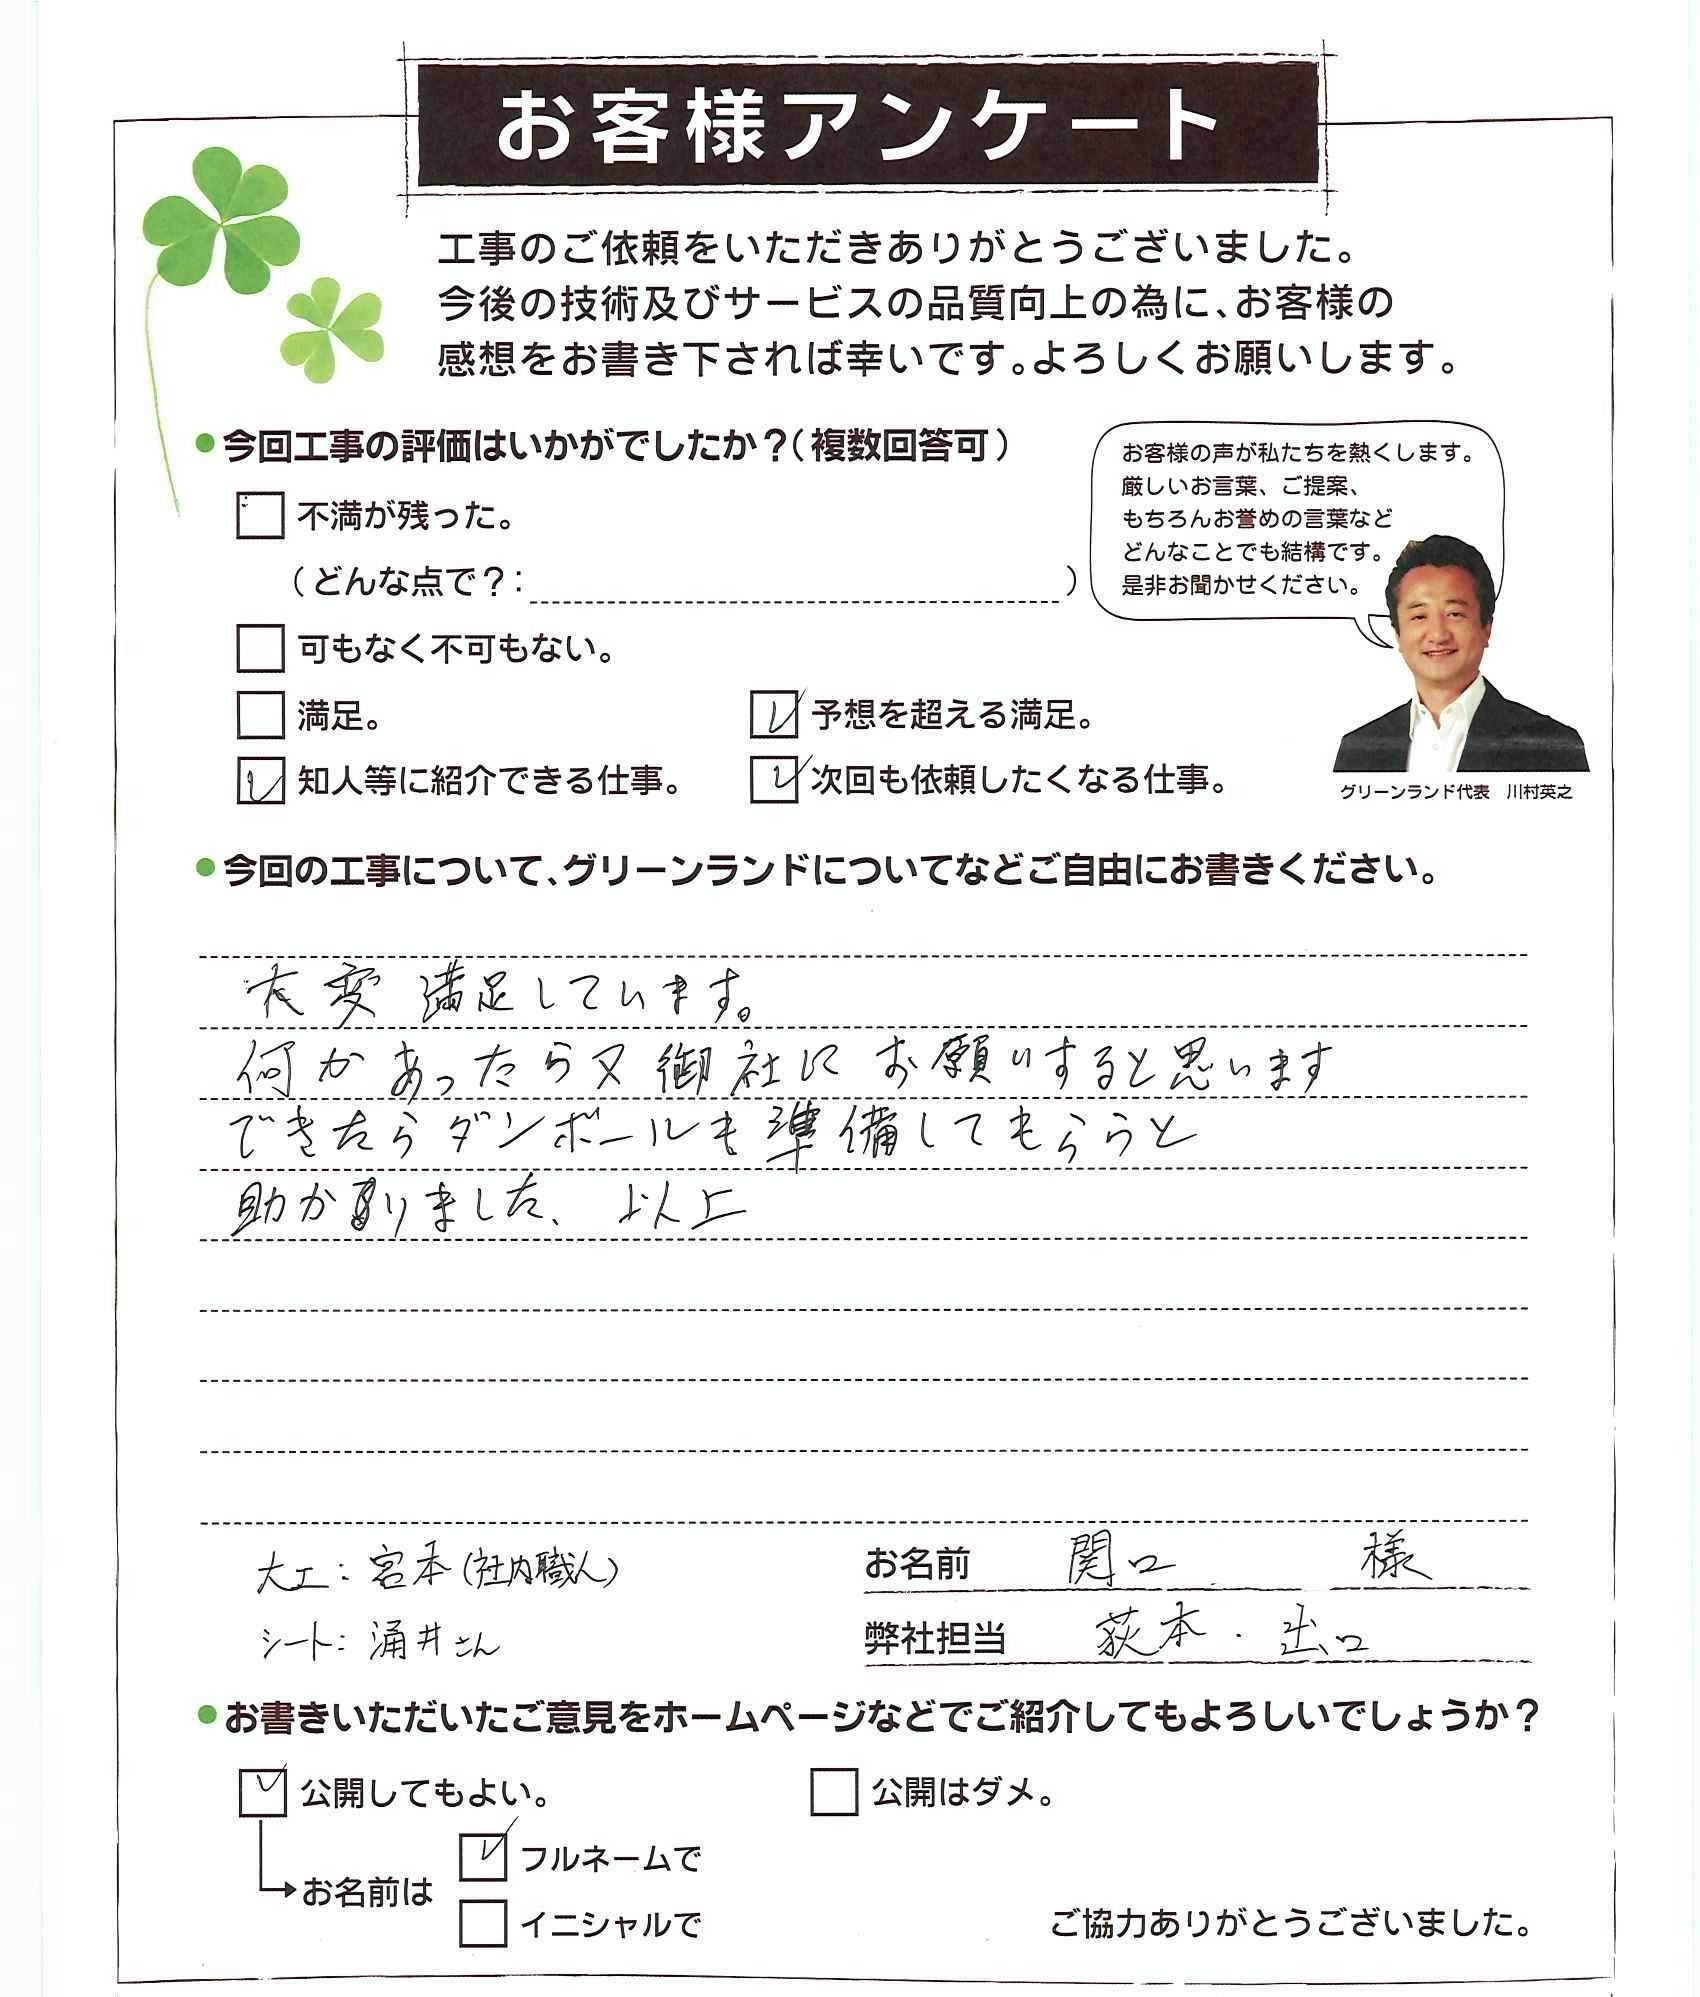 お客様アンケート
工事のご依頼をいただきありがとうございました。
今後の技術及びサービスの品質向上の為に、お客様の
感想をお書き下されば幸いです。よろしくお願いします。
●今回工事の評価はいかがでしたか？（複数回答可）
お客様の声が私たちを熱くします。
厳しいお言葉、ご提案、
もちろんお誉めの言葉など
どんなことでも結構です。
是非お聞かせください。
不満が残った。
（どんな点で？：　）
可もなく不可もない。
満足。
予想を超える満足。
知人等に紹介できる仕事。
次回も依頼したくなる仕事。
グリーンランド代表　川村英之
●今回の工事について、グリーンランドについてなどご自由にお書きください。
大変満足しています。
何かあったら又御社にお願いすると思います
できたらダンボールも準備してもららうと
助かりました、以上
大工：宮本（社内職人）
シート：涌井さん
お名前　関口　様
弊社担当　荻本・出口
●お書きいただいたご意見をホームページなどでご紹介してもよろしいでしょうか？
公開してもよい。
公開はダメ。
お名前は
フルネームで
イニシャルで
ご協力ありがとうございました。